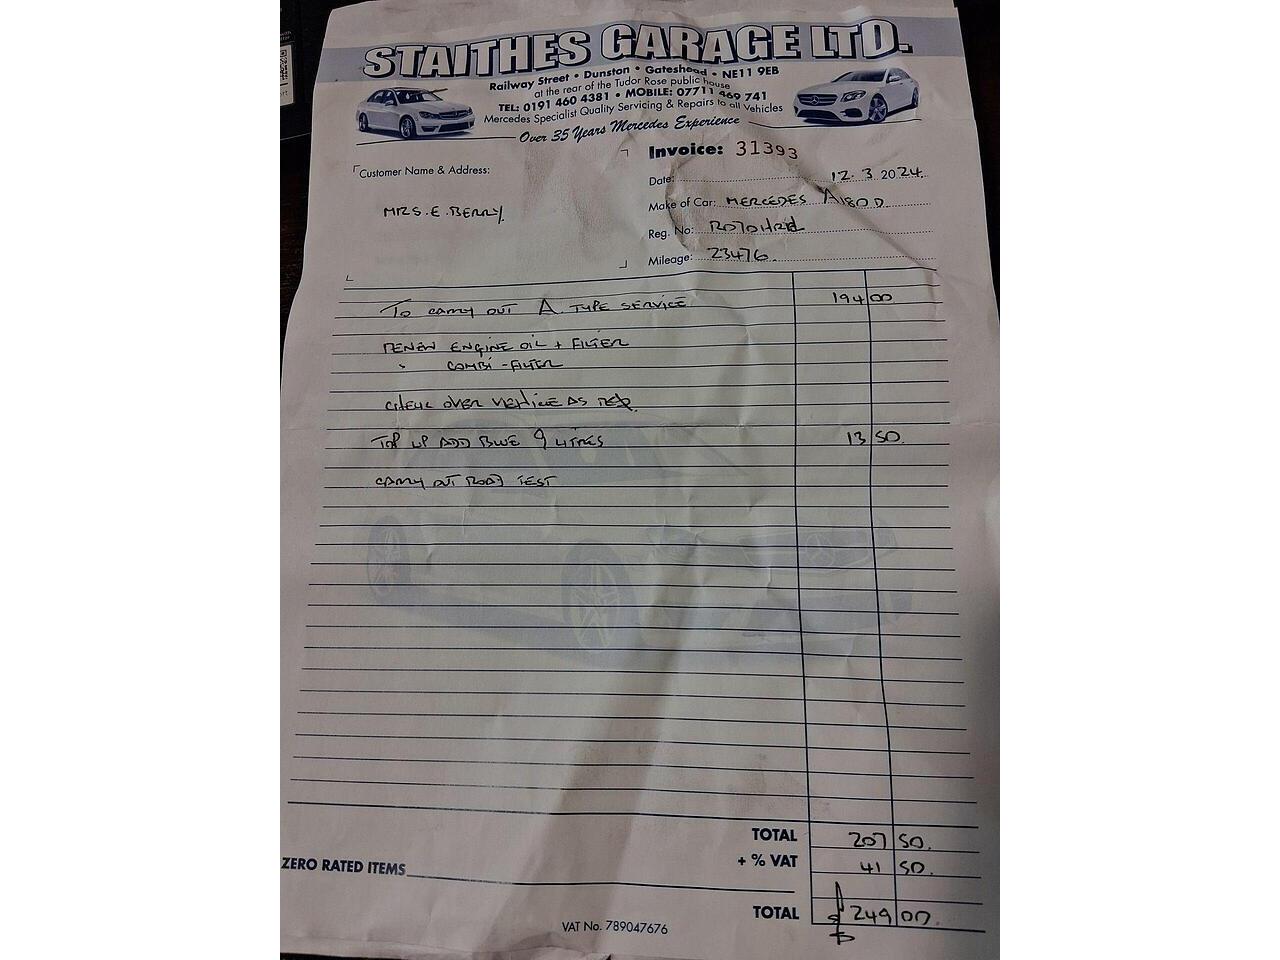 STAITHES GARAGE LTD.
Railway Street • Dunston • Gateshead • NE11 9EB
at the rear of the Tudor Rose public house
TEL: 0191 460 4381 • MOBILE: 07711 469 741
Mercedes Specialist Quality Servicing & Repairs to all Vehicles
Over 35 Years Mercedes Experience
Invoice: 31393
Customer Name & Address:
Date: 12.3 2024
MRS. E. BERRY.
Make of Car: MERCEDES A180D.
Reg. No:
Mileage: 23476.
TO CARRY OUT A TYPE SERVICE 194 00
RENEW ENGINE OIL + FILTER
" COMBI-FILTER
CHECK OVER VEHICLE AS REQ.
TOP UP ADD BLUE 9 LITRES 13 50.
CARRY OUT ROAD TEST
TOTAL 207 50.
+ % VAT 41 50.
ZERO RATED ITEMS
TOTAL £249 00.
VAT No. 789047676